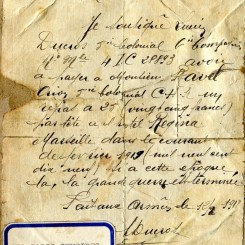 Je soussigné
Ducros 5e Colonial 6e Compagnie
N° Mle 4 I C 28823 avoir
à payer à Monsieur Favet
5e Colonial C H R un
repas à 25f (vingt cinq francs)
par tête à l'hôtel Régina
à Marseille dans le courant
de février 1919 (mil neuf cent
dix neuf) si à cette époque
là, la grande guerre est terminée
Fait aux armées le
Ducros